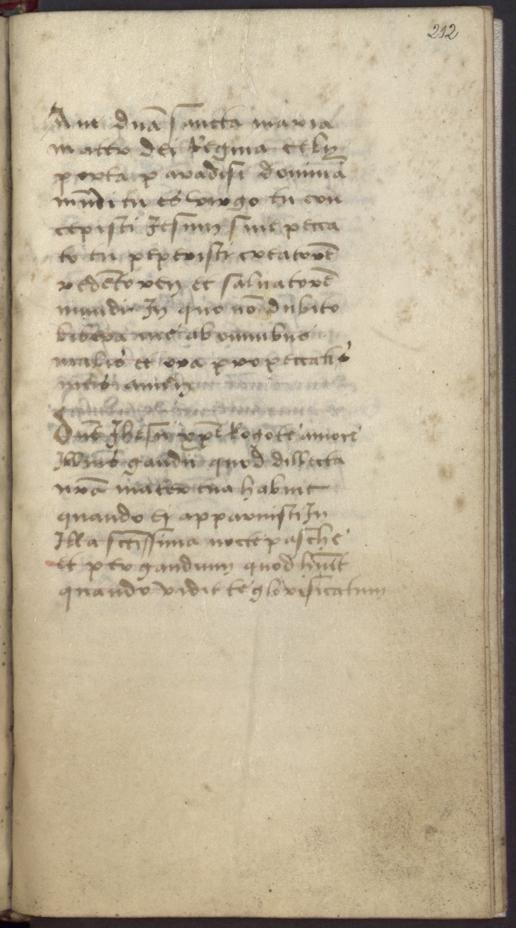 212
Aue dnā sancta maria
mater dei Regina celi
porta paradisi domina
mūdi tu es virgo tu con
cepisti Jesum sine pecca
to tu peperisti creatorē
redētorem et saluatorē
mundi In quo nō dubito
libera me ab omnibus
malis et ora pro peccatis
meis amen
Dne Jhesu xpē Rogo te amore
Illius gaudii quod dillecta
mater tua habuit
quando ei apparuisti In
Illa sctissima nocte pasche
Et per gaudium quod hūit
quando vidit te glorificatum